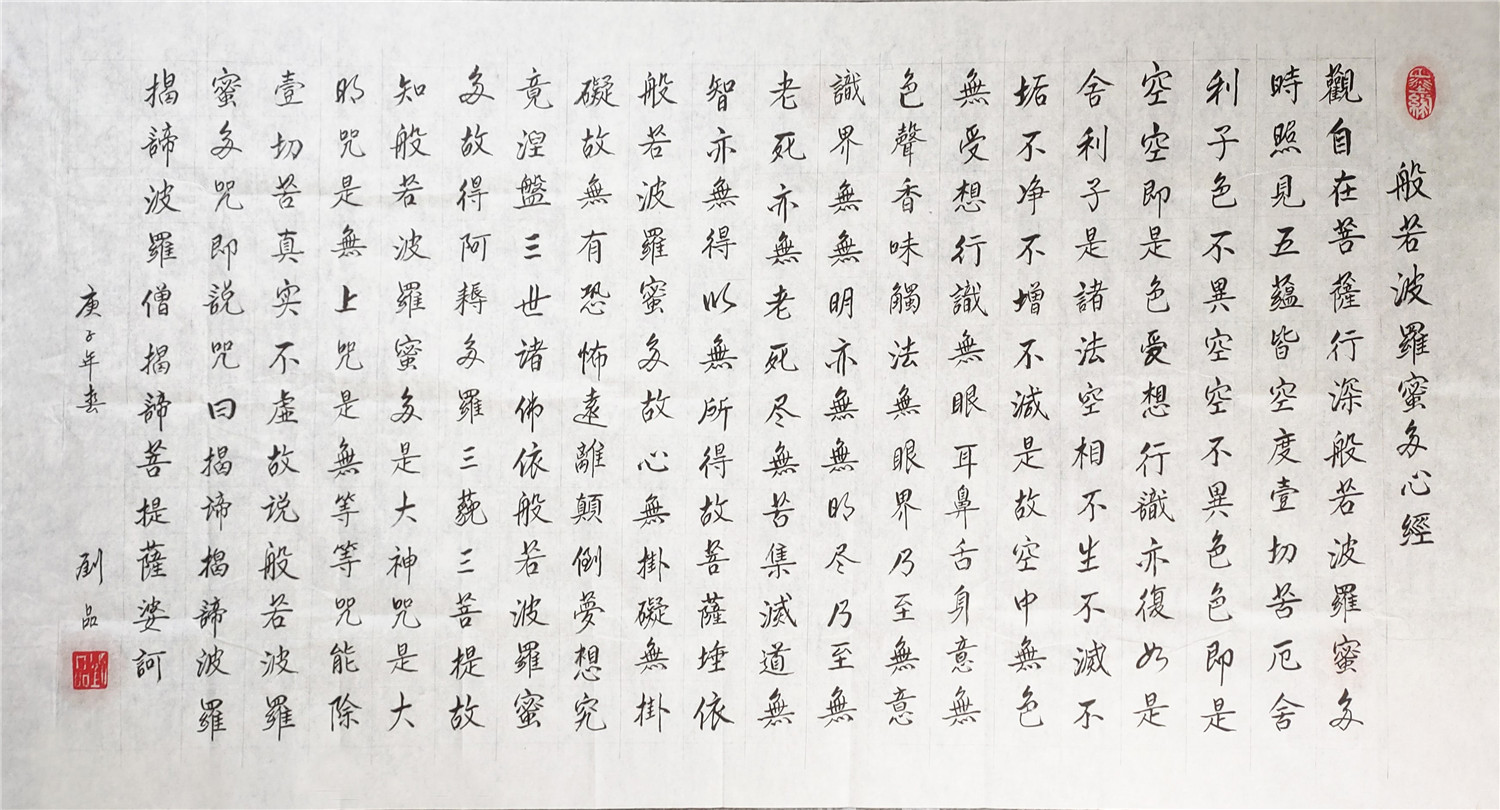 般若波羅蜜多心經
觀自在菩薩行深般若波羅蜜多
時照見五蘊皆空度壹切苦厄舍
利子色不異空空不異色色即是
空空即是色受想行識亦復如是
舍利子是諸法空相不生不滅不
垢不净不增不減是故空中無色
無受想行識無眼耳鼻舌身意無
色聲香味觸法無眼界乃至無意
識界無無明亦無無明尽乃至無
老死亦無老死尽無苦集滅道無
智亦無得以無所得故菩薩埵依
般若波羅蜜多故心無掛礙無掛
礙故無有恐怖遠離顛倒夢想究
竟涅盤三世诸佛依般若波羅蜜
多故得阿耨多羅三藐三菩提故
知般若波羅蜜多是大神咒是大
明咒是無上咒是無等等咒能除
壹切苦真实不虛故说般若波羅
蜜多咒即説咒曰揭谛揭諦波羅
揭諦波羅僧揭諦菩提薩婆訶
庚子年春 劉品